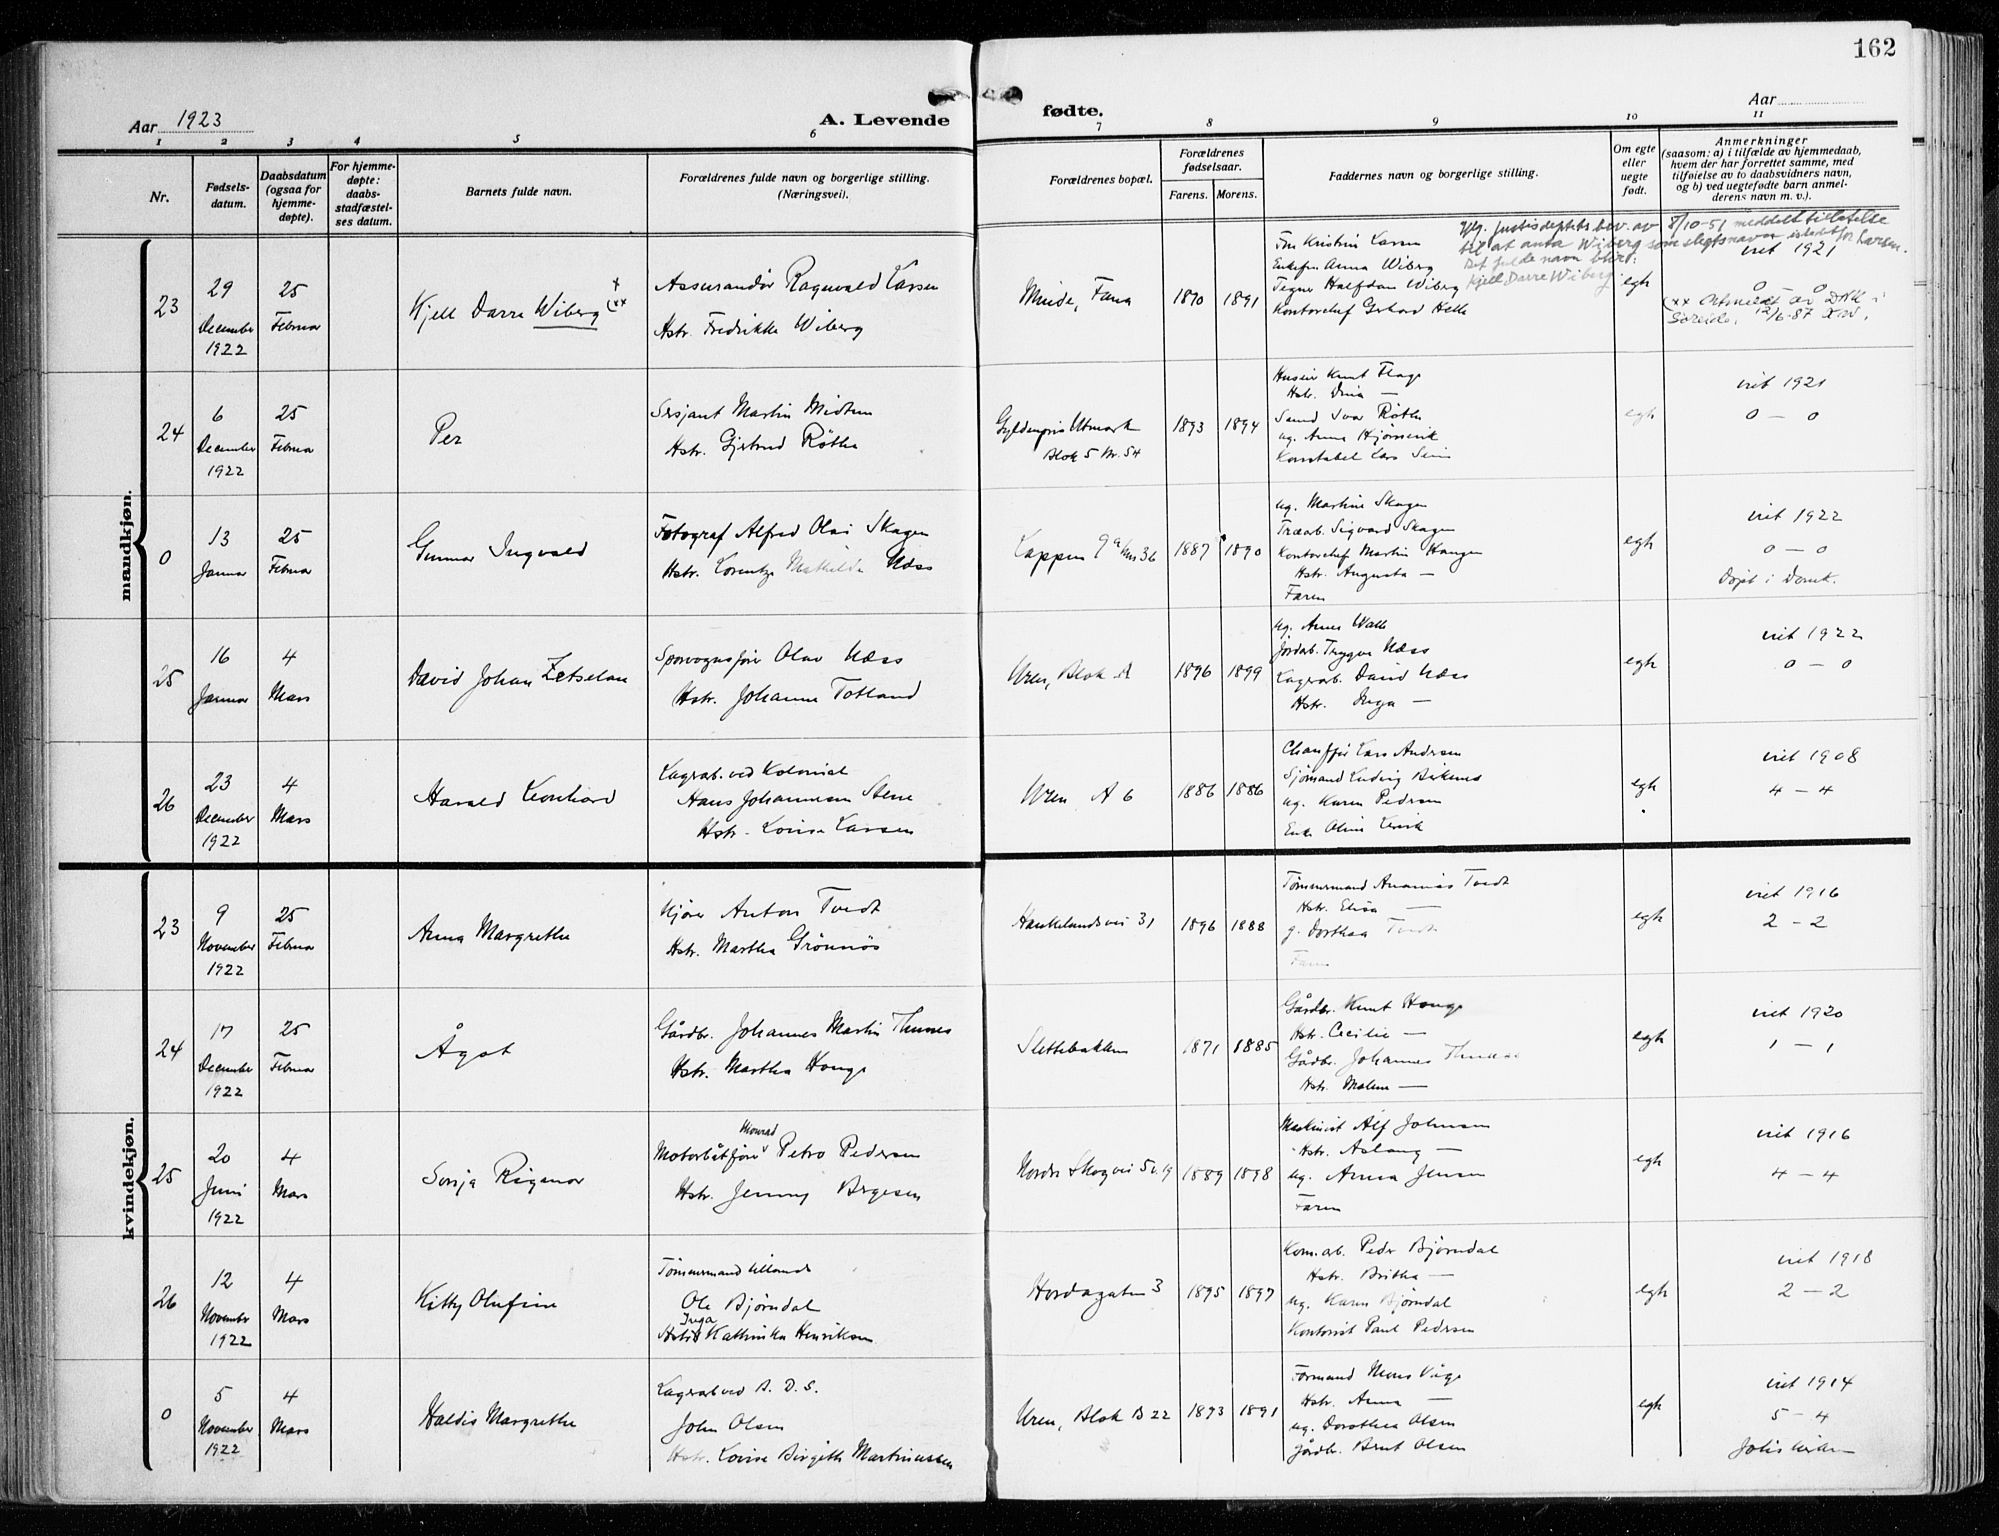 162
Aar 1923
A. Levende fødte.
Aar
1 2 3 4 5 6 7 8 9 10 11
Nr.
Fødsels-
datum.
Daabsdatum
(ogsaa for
hjemme-
døpte).
For hjemme-
døpte:
daabs-
stadfæstel-
ses datum.
Barnets fulde navn.
Forældrenes fulde navn og borgerlige stilling.
(Næringsvei).
Forældrenes bopæl.
Forældrenes
fødselsaar.
Farens. Morens.
Faddernes navn og borgerlige stilling.
Om egte
eller
uegte
født.
Anmerkninger
(saasom: a) i tilfælde av hjemmedaab,
hvem der har forrettet samme, med
tilføielse av to daabsvidners navn,
og b) ved uegtefødte barn anmel-
derens navn m. v.).
mandkjøn.
23
29
December
1922
25
Februar
Kjell Darre Wiberg x (xx
Assurandør Ragnvald Larsen
Hstr. Fredrikke Wiberg
Minde, Fana
1890 1891
Fru Kristine Larsen
Enkefru Anna Wiberg
Tegner Halfdan Wiberg
Kontorchef Gerhard Helle
Iflg. Justisdeptets bev. av 8/10-51 meddelt tillatelse
til at anta Wiberg som slegtsnavn istedetfor Larsen.
Det fulde navn blir:
Kjell Darre Wiberg.
egte
viet 1921
(xx Utmeldt av DNK i
Søreide, 12/6-87
24
6
December
1922
25
Februar
Per
Sersjant Martin Midtun
Hstr. Gjertrud Røthe
Gyldenpris Utmark
Blok 5 Nr. 54
1893 1894
Huseier Knut Flage
Hstr. Dina —
Ivar Røthe
ug. Anna
Konstabel Lars
egte
viet 1921
0 — 0
0
13
Januar
25
Februar
Gunnar Ingvald
Fotograf Alfred Olai Skagen
Hstr. Lorentze Mathilde Næss
Lappen 9a hus 36
1887 1890
ug. Martine Skagen
Træarb. Sigvard Skagen
Kontorchef Martin Haugen
Hstr. Augusta —
Faren
egte
viet 1922
0 — 0
Døpt i Domk.
25
16
Januar
4
Mars
David Johan Zetselau
Sporvognsfører Olav Næss
Hstr. Johanne Totland
Uren, Blok A
1896 1899
ug. Anna Walle
Jordarb. Trygve Næss
Lagerarb. David Næss
Hstr. Inga —
egte
viet 1922
0 — 0
26
23
December
1922
4
Mars
Harald Leonhard
Lagerarb. ved Kolonial
Hans Johannesen Stene
Hstr. Louise Larsen
Uren A 6
1886 1886
Chauffør Lars Andersen
Sjømand Ludvig Birkenes
ug. Karen Pedersen
Enke Oline
egte
viet 1908
4 — 4
kvindekjøn.
23
9
November
1922
25
Februar
Anna Margrethe
Kjører Anton Tvedt
Hstr. Martha Grønnøs
Haukelandsvei 31
1896 1888
Tømmermand Ananias Tvedt
Hstr. Elisa —
g. Dorthea Tvedt
Faren
egte
viet 1916
2 — 2
24
17
December
1922
25
Februar
Ågot
Gårdbr. Johannes Martin Thunes
Hstr. Martha Hauge
Slettebakken
1871 1885
Gårdbr. Knut Hauge
Hstr. Cecilie —
Gårdbr. Johannes Thunes
Hstr. Malene —
egte
viet 1920
1 — 1
25
20
Juni
1922
4
Mars
Sonja Rigmor
Motorbåtfører Monrad Petro Pedersen
Hstr. Jenny Børgesen
Nordre Skogvei 5 v. 19
1889 1898
Maskinist Alf Johnsen
Hstr. Aslaug —
ug. Anna Jensen
Faren
egte
viet 1916
4 — 4
26
12
November
1922
4
Mars
Kitty Olufine
Tømmermand
Ole Bjørndal
Hstr. Inga Kathinka Henriksen
Hordagaten 3
1895 1897
Kom.arb. Peder Bjørndal
Hstr. Britha —
ug. Karen Bjørndal
Kontorist Paul Pedersen
egte
viet 1918
2 — 2
0
5
November
1922
4
Mars
Haldis Margrethe
Lagerarb. ved B. D. S.
John Olsen
Hstr. Louise Birgitte Martinussen
Uren, Blok B 22
1893 1891
Formand Mons Våge
Hstr. Anna —
ug. Dorothea Olsen
Gårdbr. Bernt Olsen
egte
viet 1914
5 — 4